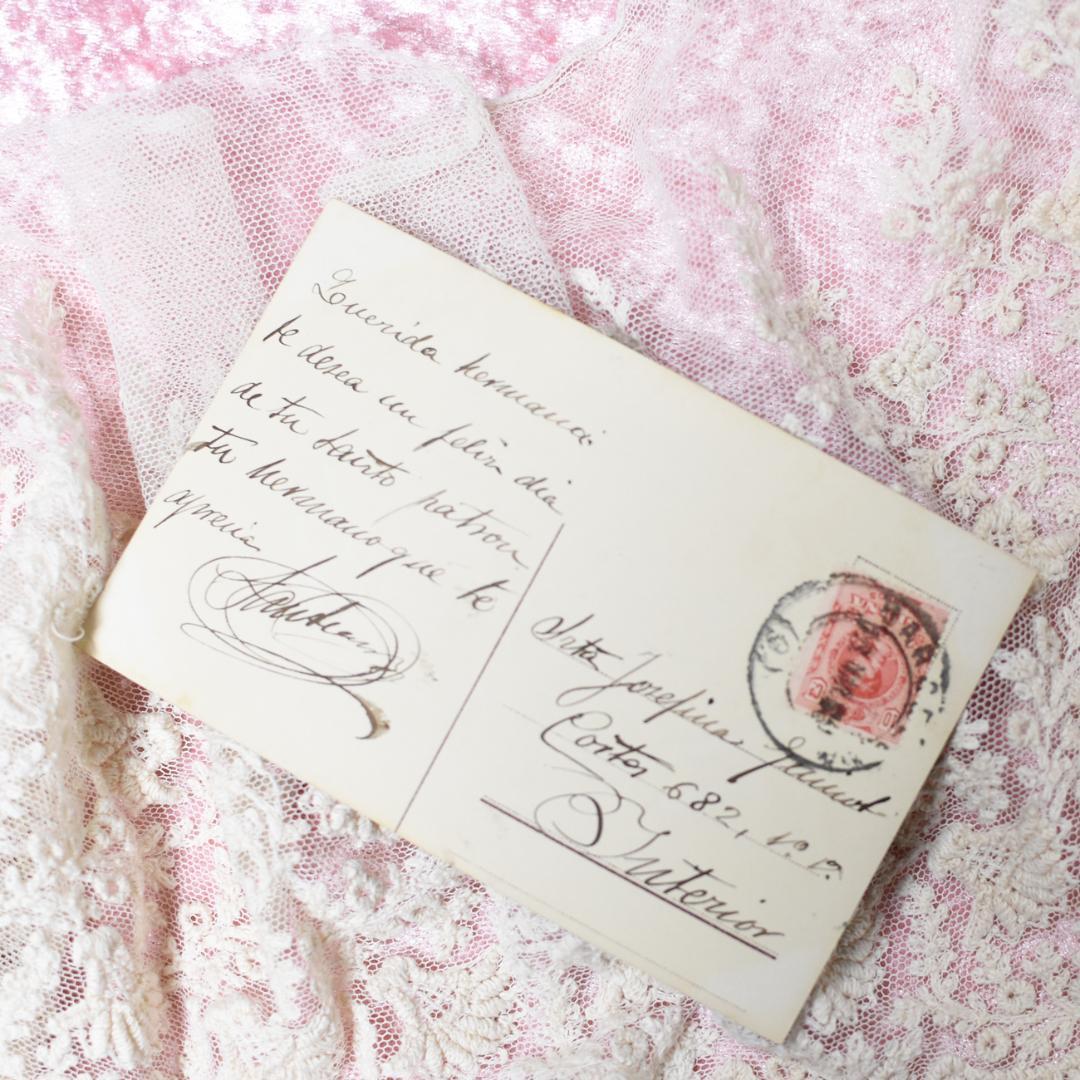 Querida hermana:
te desea un feliz dia
de tu santo patron
tu hermano que te
aprecia
Srta Josefina
Cortes 682, 1º 1ª
Interior